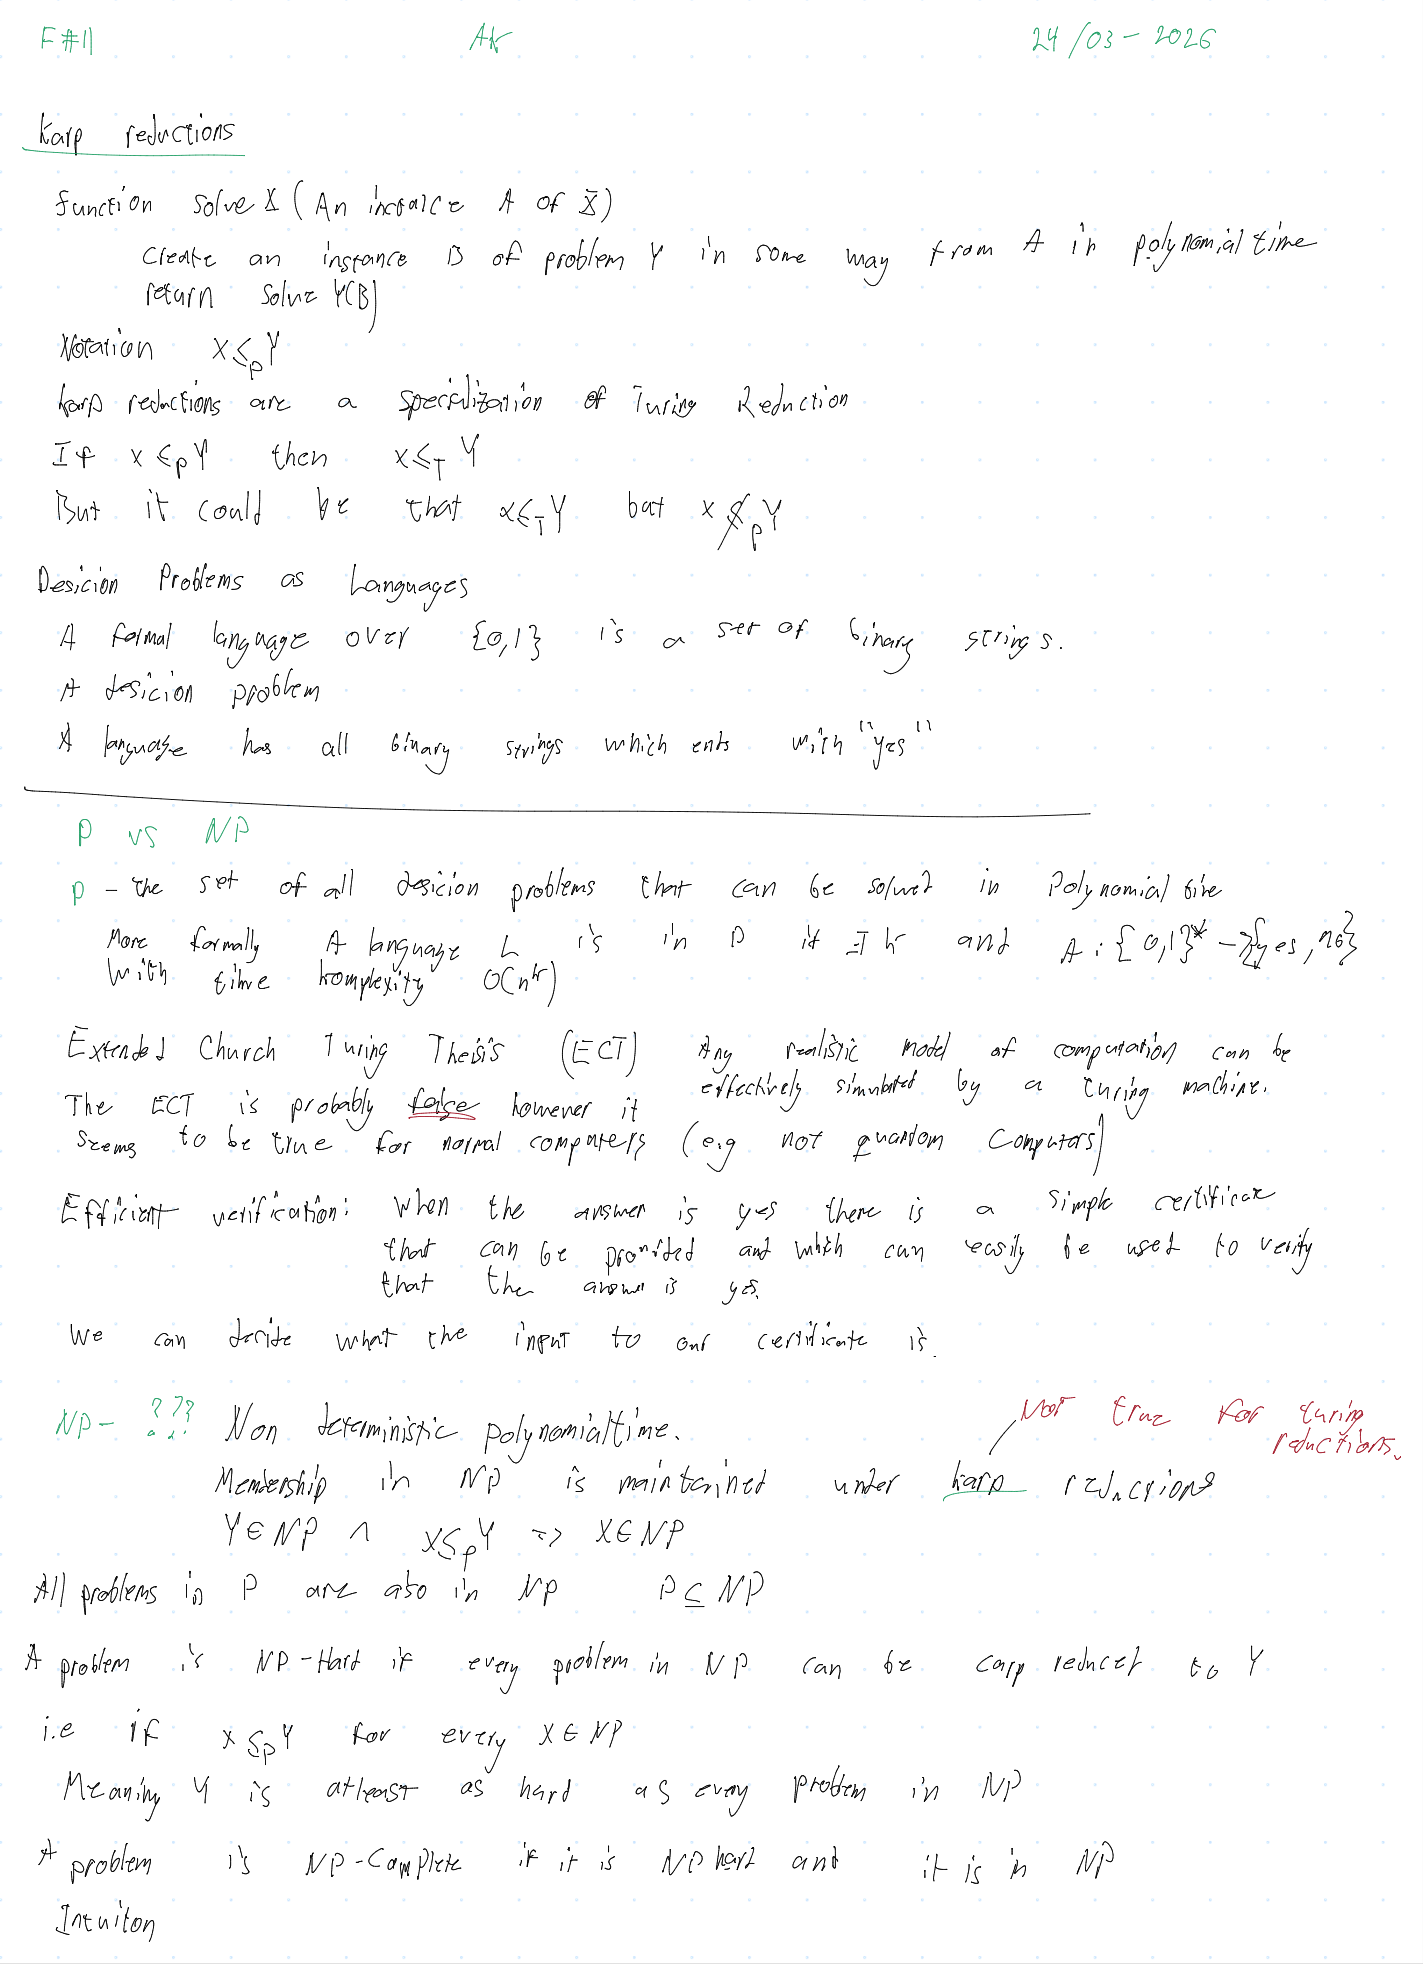 F#11 AK 24/03-2026
Karp reductions
function solve X (An instalce A of X)
Create an instance B of problem Y in some way from A in polynomial time
return solve Y(B)
Notation X ≤p Y
Karp reductions are a specialization of Turing Reduction
If X ≤p Y then X ≤T Y
But it could be that X ≤T Y but X ≰p Y
Desicion Problems as Languages
A formal language over {0,1} is a set of binary strings.
A desicion problem
A language has all binary strings which ents with "yes"
P vs NP
P - the set of all desicion problems that can be solved in Polynomial time
More formally A language L is in P if ∃ k and A : {0,1}* → {yes, no}
with time komplexity O(n^k)
Extended Church Turing Thesis (ECT) Any realistic model of computation can be
effectively simulated by a turing machine.
The ECT is probably false however it
seems to be true for normal computers (e.g not quandom Computors)
Efficient verification: When the answer is yes there is a simple certificate
that can be provided and which can easily be used to verify
that the answer is yes.
We can decide what the input to our certificate is.
Not true for turing
reductions.
NP - ??? Non deterministic polynomialtime.
Membership in NP is maintained under karp reductions
Y ∈ NP ∧ X ≤p Y => X ∈ NP
All problems in P are also in NP P ⊆ NP
A problem is NP-Hard if every problem in NP can be carp reduced to Y
i.e if X ≤p Y for every X ∈ NP
Meaning Y is atleast as hard as every problem in NP
A problem is NP-Complete if it is NP hard and it is in NP
Intuiton